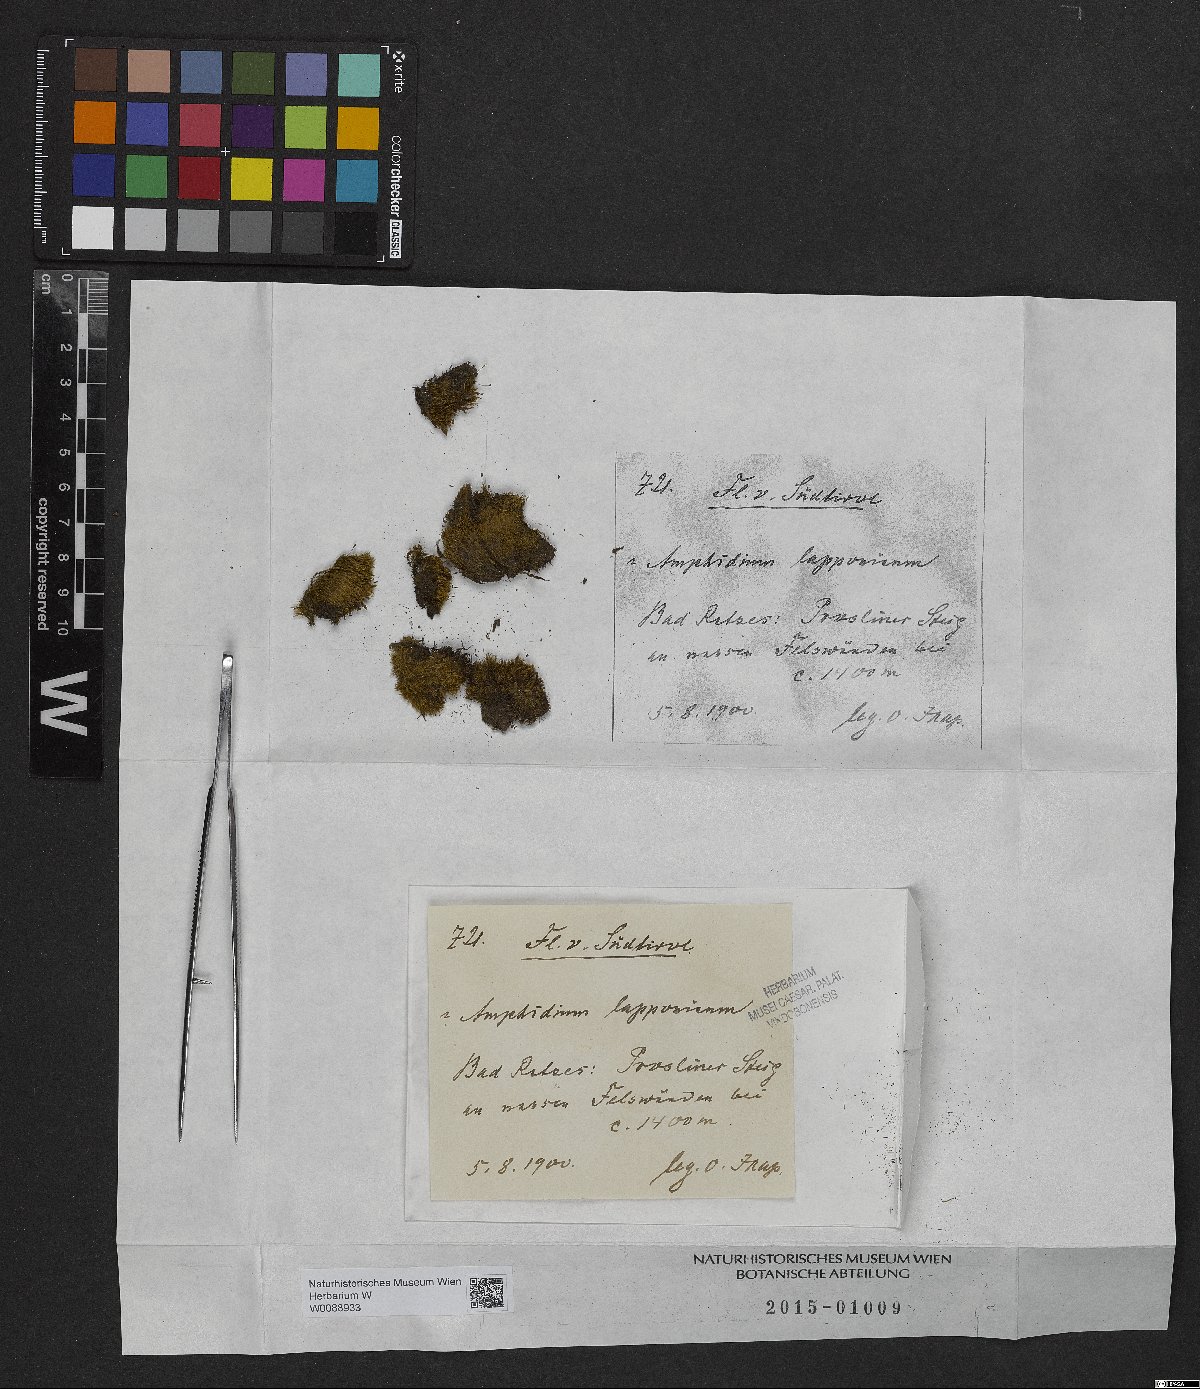 x-rite
colorchecker CLASSIC
mm
0 1 2 3 4 5 6 7 8 9 10
cm
copyright reserved
W
721. Fl. v. Südtirol
Amphidium lapponicum
Bad Ratzes: Prosliner Steig
an nassen Felswänden bei
c. 1400 m
5. 8. 1900. leg. O.
721. Fl. v. Südtirol
Amphidium lapponicum
Bad Ratzes: Prosliner Steig
an nassen Felswänden bei
c. 1400 m
5. 8. 1900. leg. O.
HERBARIUM
MUSEI CAESAR. PALAT.
VINDOBONENSIS
NATURHISTORISCHES MUSEUM WIEN
BOTANISCHE ABTEILUNG
2015-01009
Naturhistorisches Museum Wien
Herbarium W
W0088933